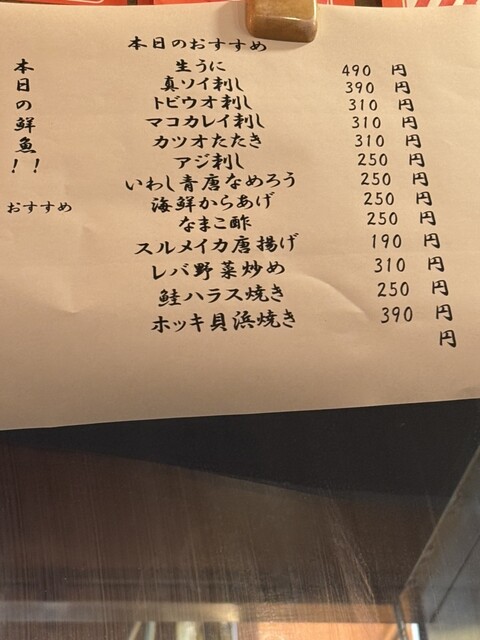 本日のおすすめ
本日の鮮魚!!
おすすめ
生うに 490 円
真ソイ刺し 390 円
トビウオ刺し 310 円
マコカレイ刺し 310 円
カツオたたき 310 円
アジ刺し 250 円
いわし青唐なめろう 250 円
海鮮からあげ 250 円
なまこ酢 250 円
スルメイカ唐揚げ 190 円
レバ野菜炒め 310 円
鮭ハラス焼き 250 円
ホッキ貝浜焼き 390 円
円